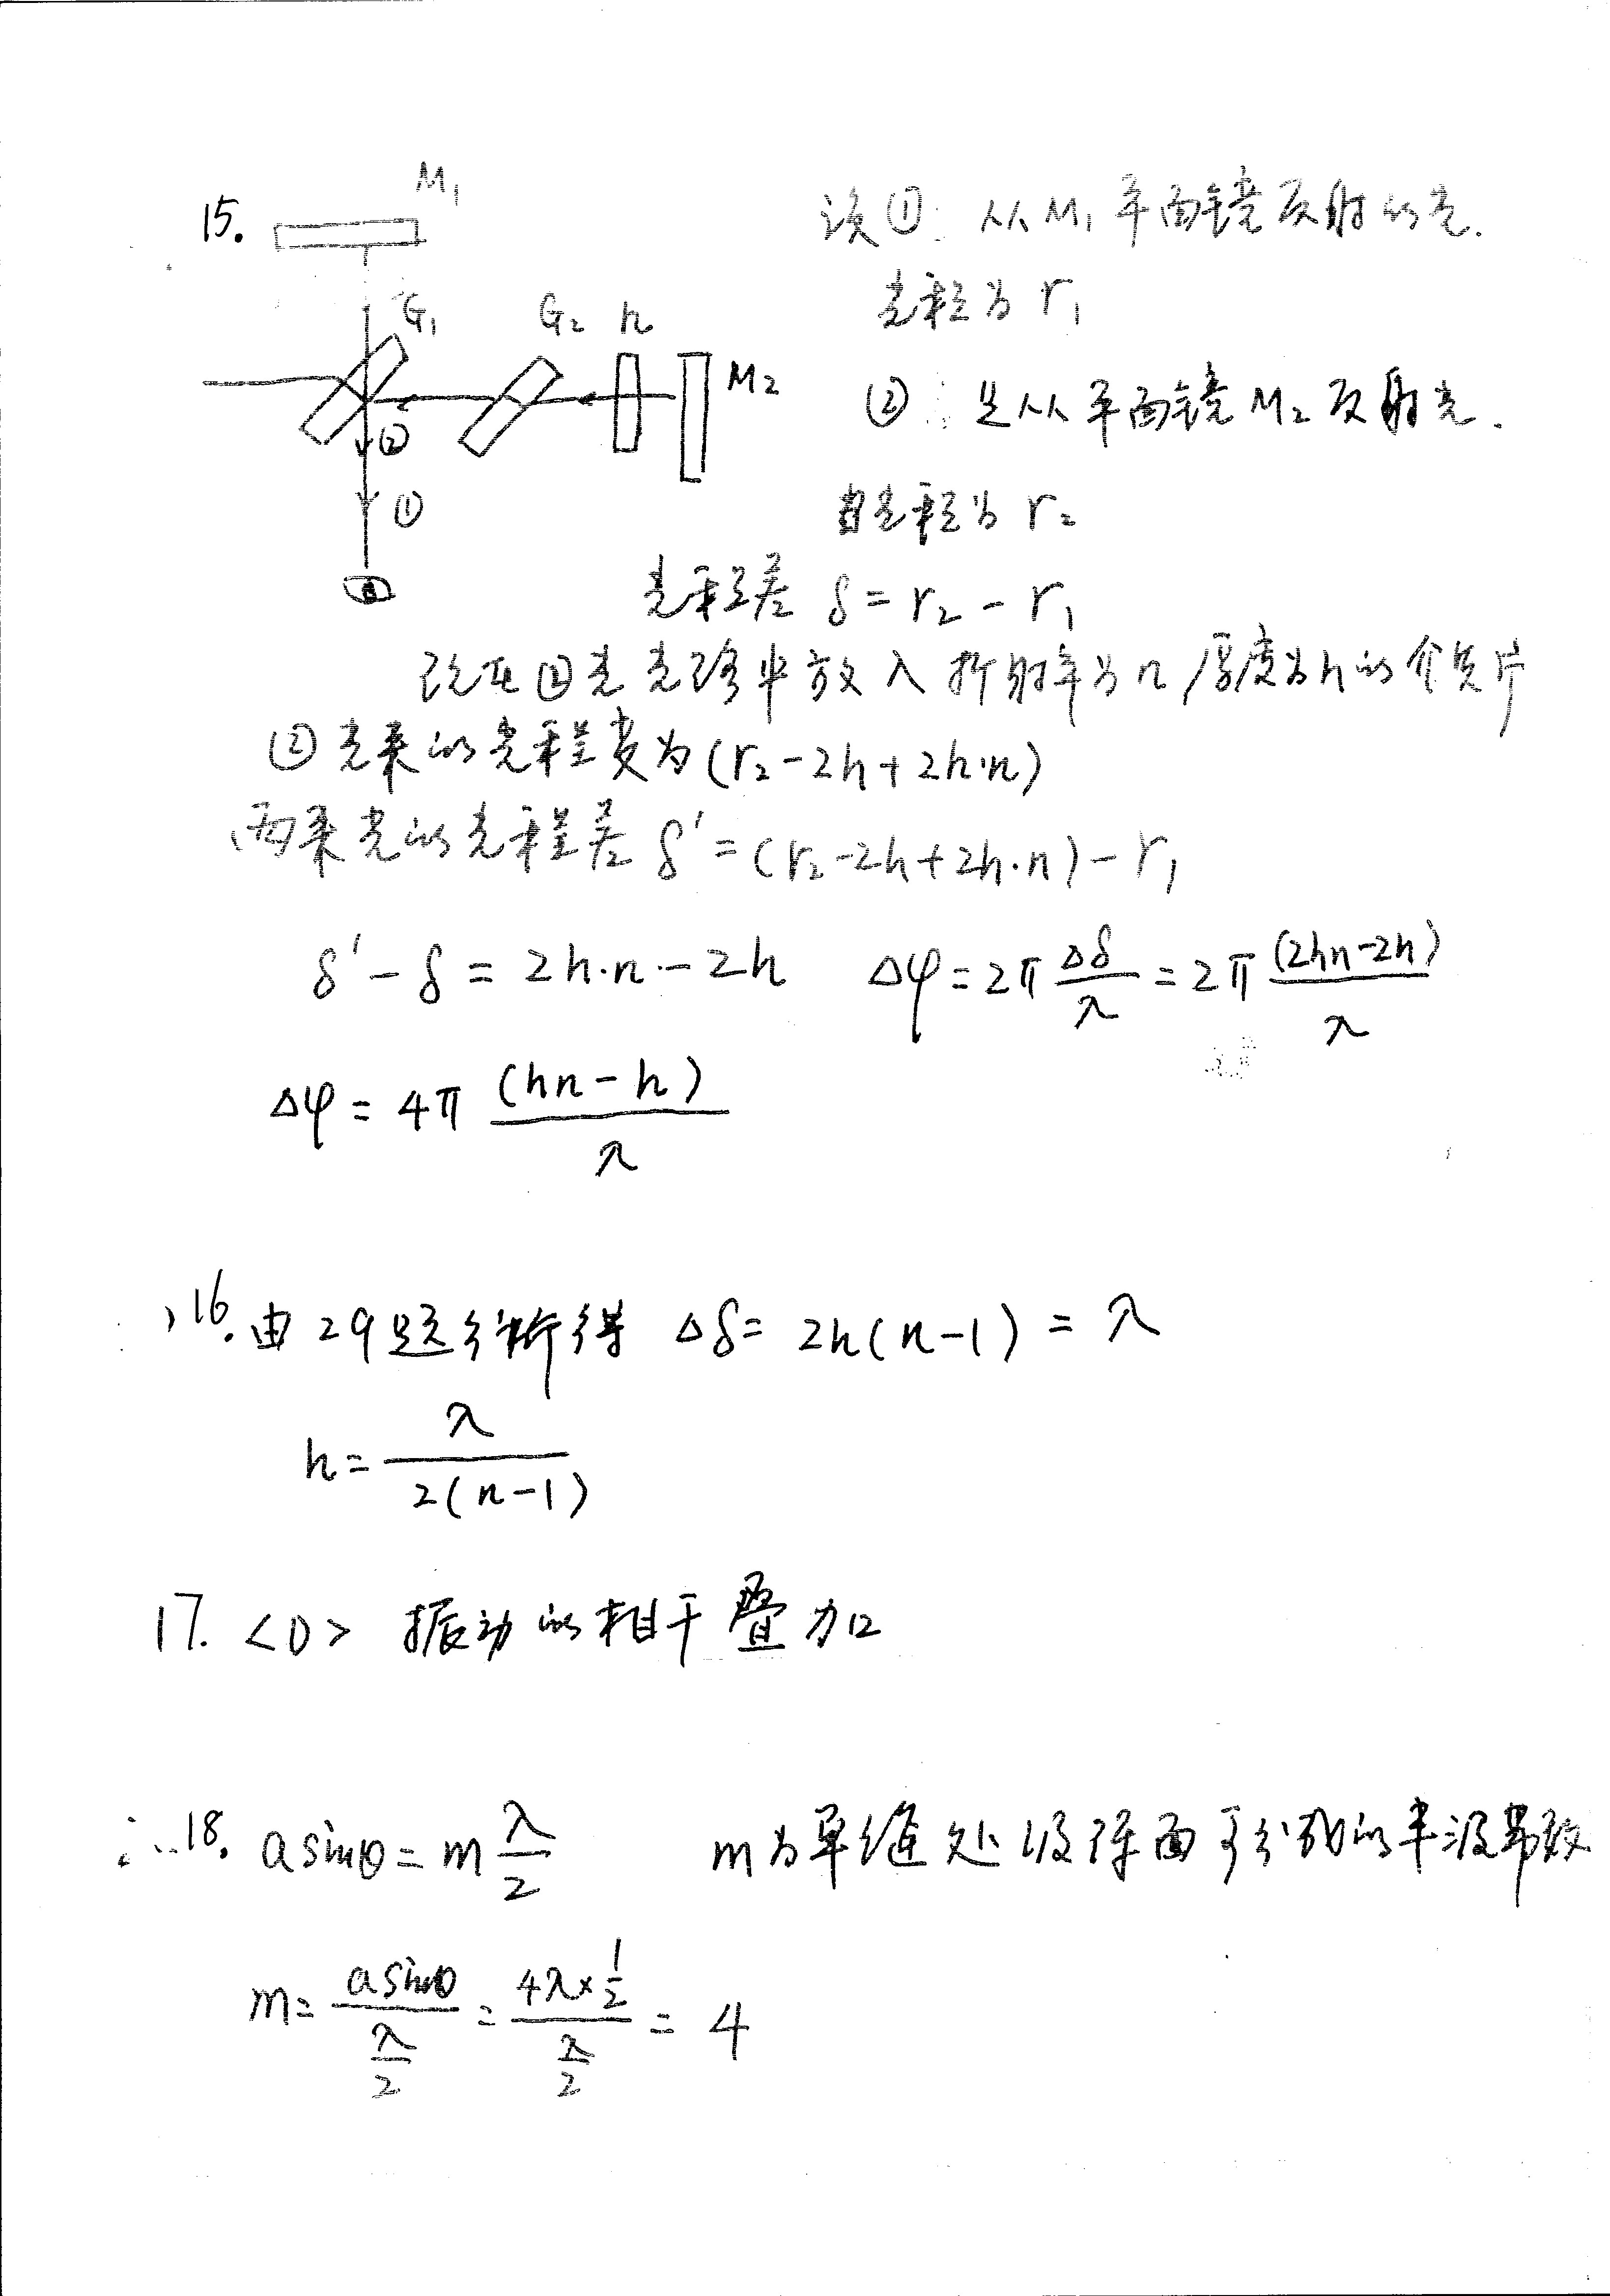 15.
M₁
G₁
G₂
h
M₂
②
①
设①: 从M₁平面镜反射的光.
光程为 r₁
②: 是从平面镜M₂反射光.
光程为 r₂
光程差 δ = r₂ - r₁
现在②光光路中放入折射率为n,厚度为h的介质片
②光束的光程变为(r₂-2h+2h·n)
两束光的光程差 δ' = (r₂-2h+2h·n) - r₁
δ' - δ = 2h·n - 2h Δφ = 2π Δδ/λ = 2π (2hn-2h)/λ
Δφ = 4π (hn-h)/λ
16. 由29题分析得 Δδ = 2h(n-1) = λ
h = λ/2(n-1)
17. <D> 振动的相干叠加
18. a sinθ = m λ/2 m为单缝处波阵面可分成的半波带数
m = a sinθ/(λ/2) = (4λ×1/2)/(λ/2) = 4